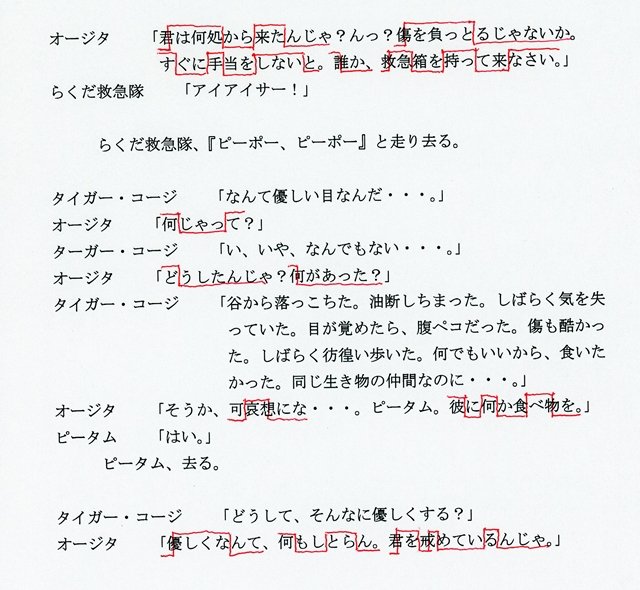 オージタ　「君は何処から来たんじゃ？んっ？傷を負っとるじゃないか。
すぐに手当をしないと。誰か、救急箱を持って来なさい。」
らくだ救急隊　「アイアイサー！」
らくだ救急隊、『ピーポー、ピーポー』と走り去る。
タイガー・コージ　「なんて優しい目なんだ・・・。」
オージタ　「何じゃって？」
ターガー・コージ　「い、いや、なんでもない・・・。」
オージタ　「どうしたんじゃ？何があった？」
タイガー・コージ　「谷から落っこちた。油断しちまった。しばらく気を失
っていた。目が覚めたら、腹ペコだった。傷も酷かっ
た。しばらく彷徨い歩いた。何でもいいから、食いた
かった。同じ生き物の仲間なのに・・・。」
オージタ　「そうか、可哀想にな・・・。ピータム。彼に何か食べ物を。」
ピータム　「はい。」
ピータム、去る。
タイガー・コージ　「どうして、そんなに優しくする？」
オージタ　「優しくなんて、何もしとらん。君を戒めているんじゃ。」